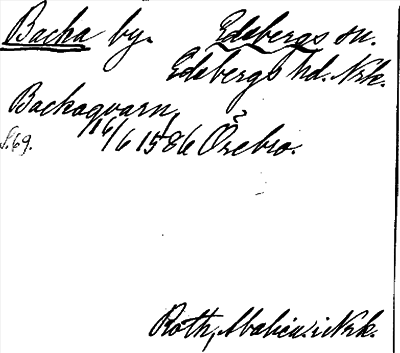 Backa by. Edsbergs sn.
Edsbergs hd. Nrk.
Backaqvarn,
s. 69. 16/6 1586 Örebro.
Roth, i Nrk.